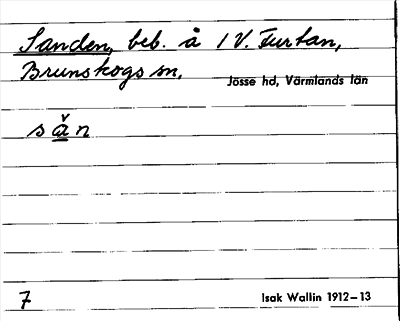 Sanden, beb. å 1 V. Furtan,
Brunskogs sn.
Jösse hd, Värmlands län
sǎn
7
Isak Wallin 1912–13